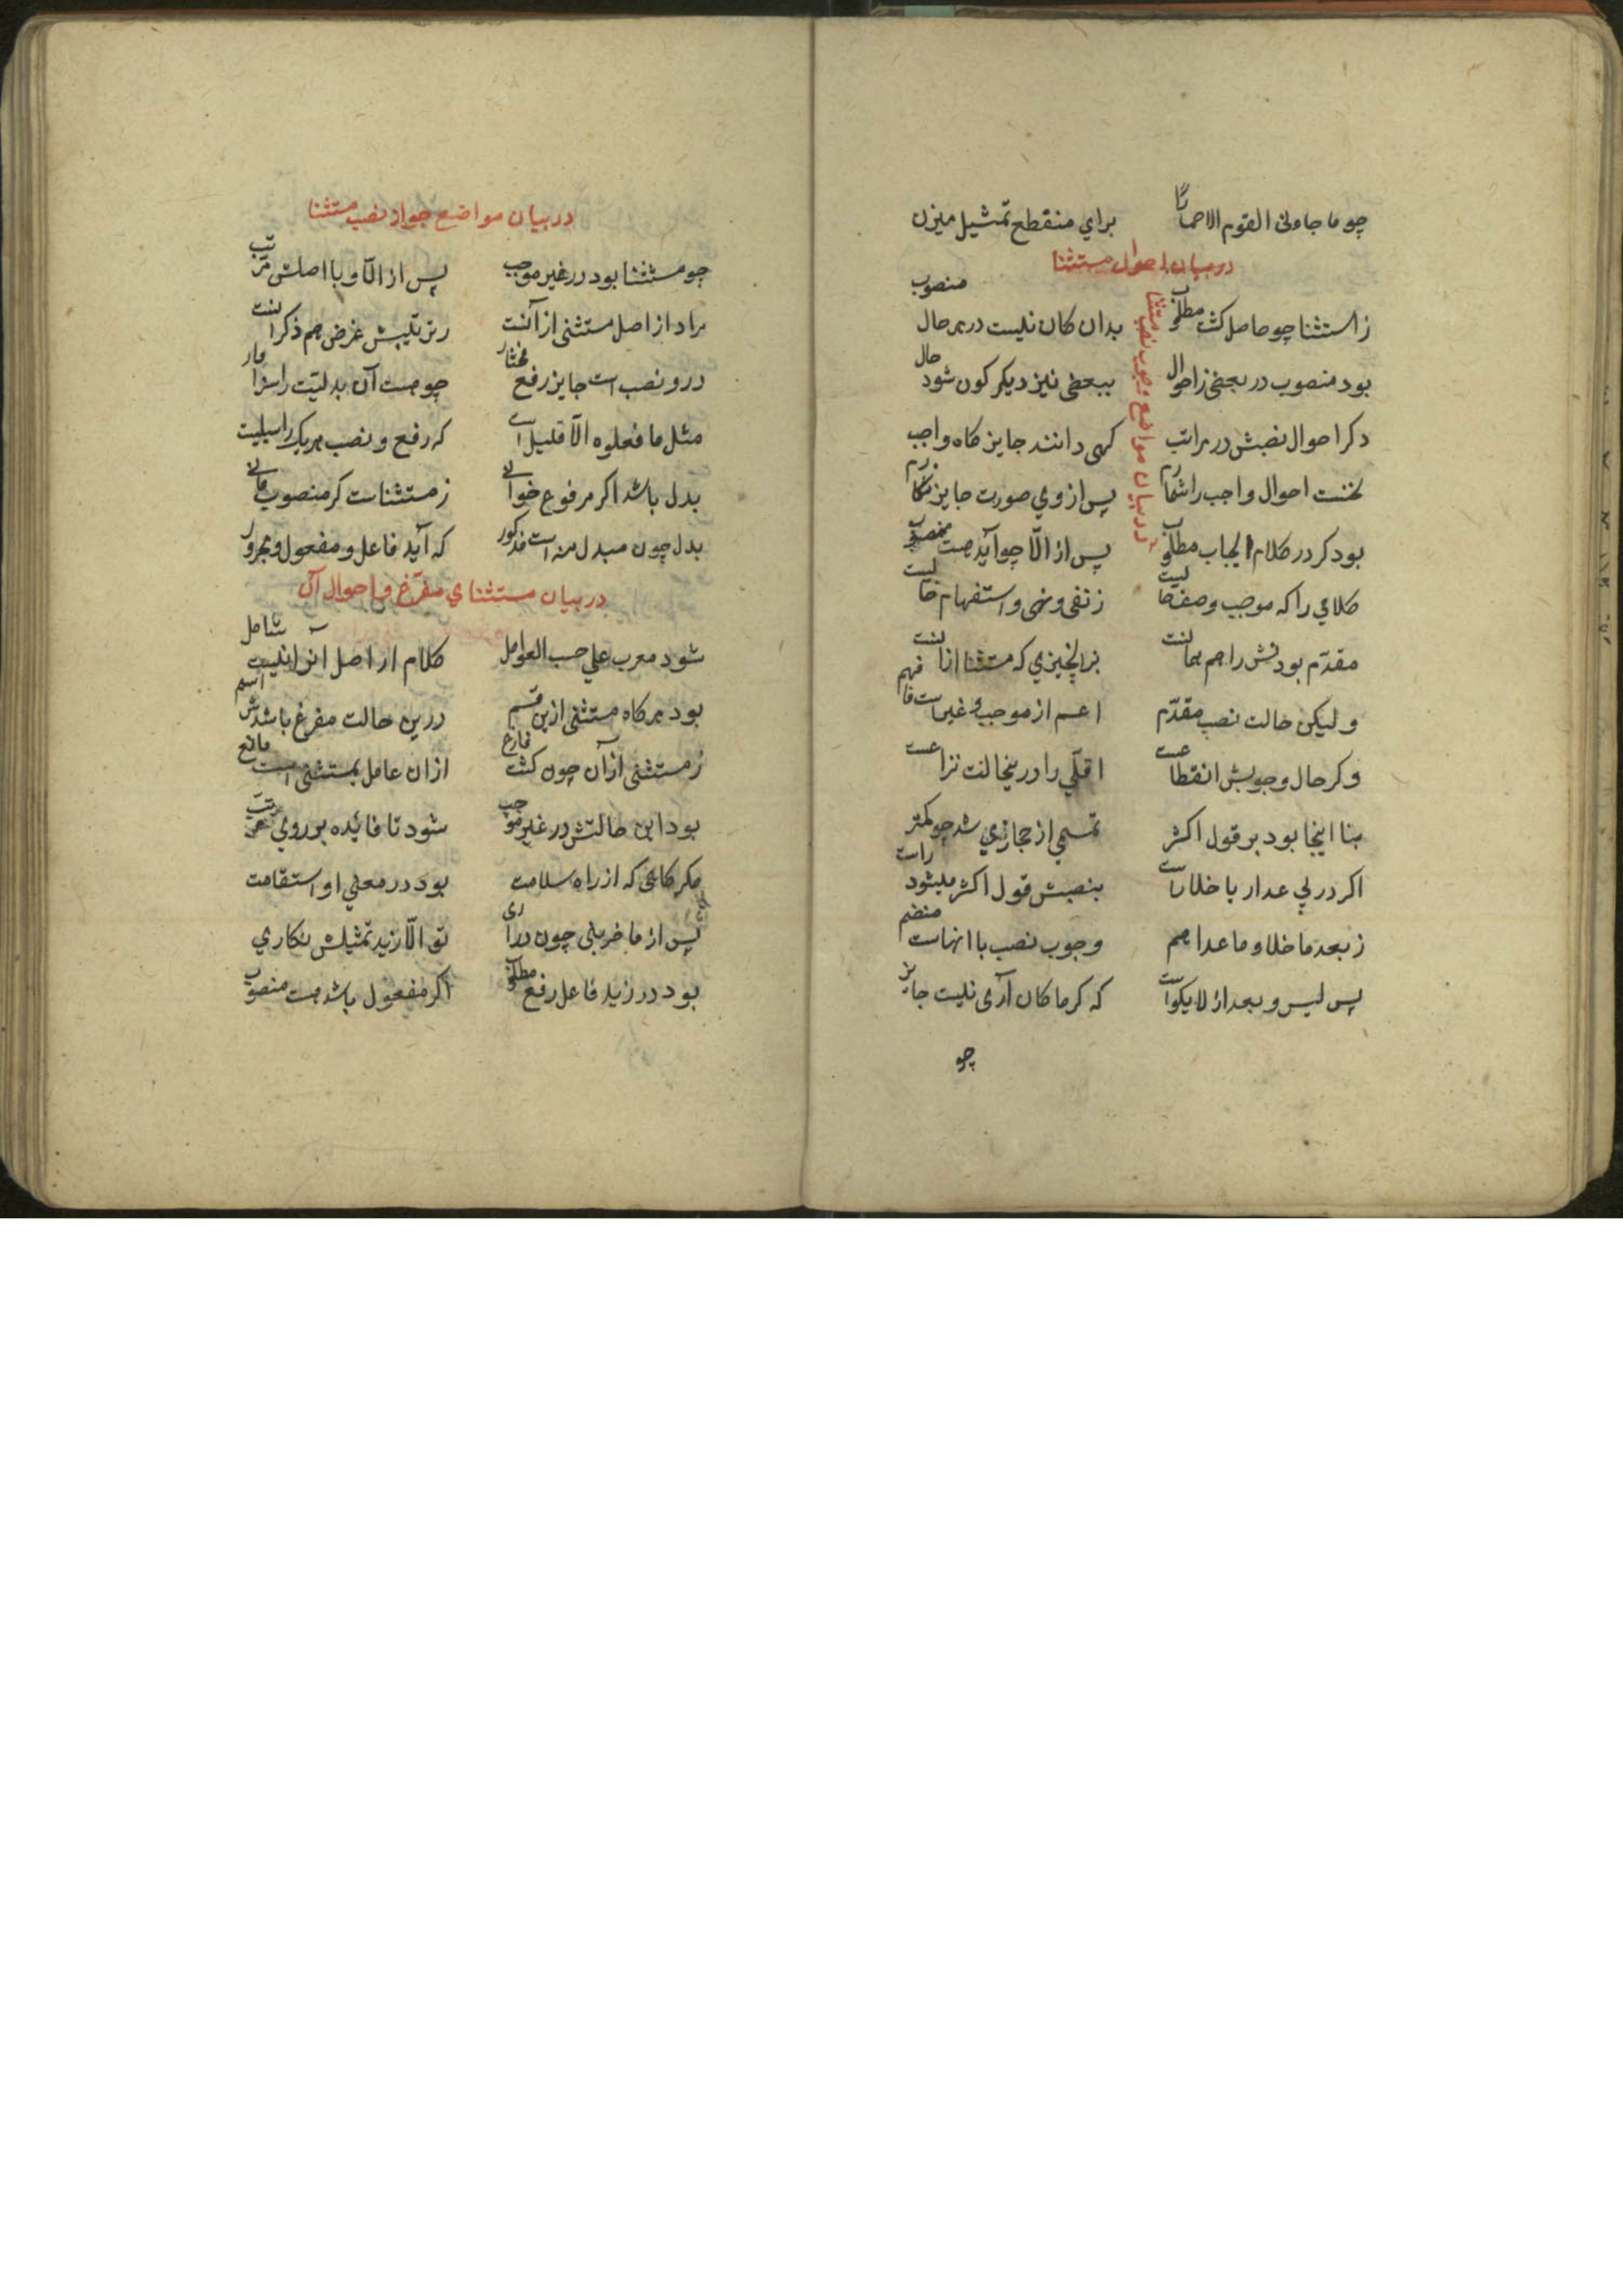 چو ما جاءنی القوم الاحمارًا برای منقطع تمثیل میزن
در بیان احوال مستثنا
ز استثنا چو حاصل کشت مطلوب بدان کان نیست در هر حال منصوب
بود منصوب در بعضی ز احوال ببعضی نیز دیکر کون شود حال
دکر احوال نصبش در مراتب کهی دانند جایز کاه واجب
در بیان مواضع وجوب نصب مستثنا
نخست احوال واجب را شمارم پس از وی صورت جایز نکارم
بود کر در کلام ایجاب مطلوب پس از الّا چو آید هست منصوب
کلامی را که موجب وصف حالیست ز نفی و نهی و استفهام خالیست
مقدّم بودنش را هم همانست
ولیکن حالت نصب مقدّم اعم از موجب و غیر است فافهم
وکر حال وجوبش انقطاعست اقلّی را درینحالت نزاعست
بنا اینجا بود بر قول اکثر تمیمی از حجازی شد چو کمتر
اکر در پی عدا را یا خلا راست بنصبش قول اکثر میشود راست
ز بعد ما خلا و ما عدا هم وجوب نصب با انهاست منضم
پس لیس و بعد از لا یکوانست که کر ما کان آری نیست جایز
چو
در بیان مواضع جواز نصب مستثنا
چو مستثنا بود در غیر موجب پس از الّا و با اصلش مرتّب
مراد از اصل مستثنی از آنست ز ترتیبش غرض هم ذکر انست
درو نصب است جایز رفع مختار چو هست آن بدلیّت را سزاوار
مثل ما فعلوه الّا قلیل است که رفع و نصب هر یک را سبیلیست
بدل باشد اکر مرفوع خوانی ز مستثناست کر منصوب دانی
بدل چون مبدل منه است مذکور که آید فاعل و مفعول و مجرور
در بیان مستثنای مفرّغ و احوال آن
شود معرب علی حسب العوامل کلام ار اصل انرا نیست شامل
بود هرکاه مستثنی ازین قسم درین حالت مفرغ باشدش اسم
ز مستثنی از آن چون کشت فارغ ازان عامل بمستثنی است مانع
بود این حالتش در غیر موجب شود تا فایده بر وی مرتّب
مکر کاهی که از راه سلامت بود در معنی او استقامت
پس از ما ضربنی چون در آری تو الّا زید تمثیلش نکاری
بود در زید فاعل رفع مطلوب اکر مفعول باشد هست منصوب